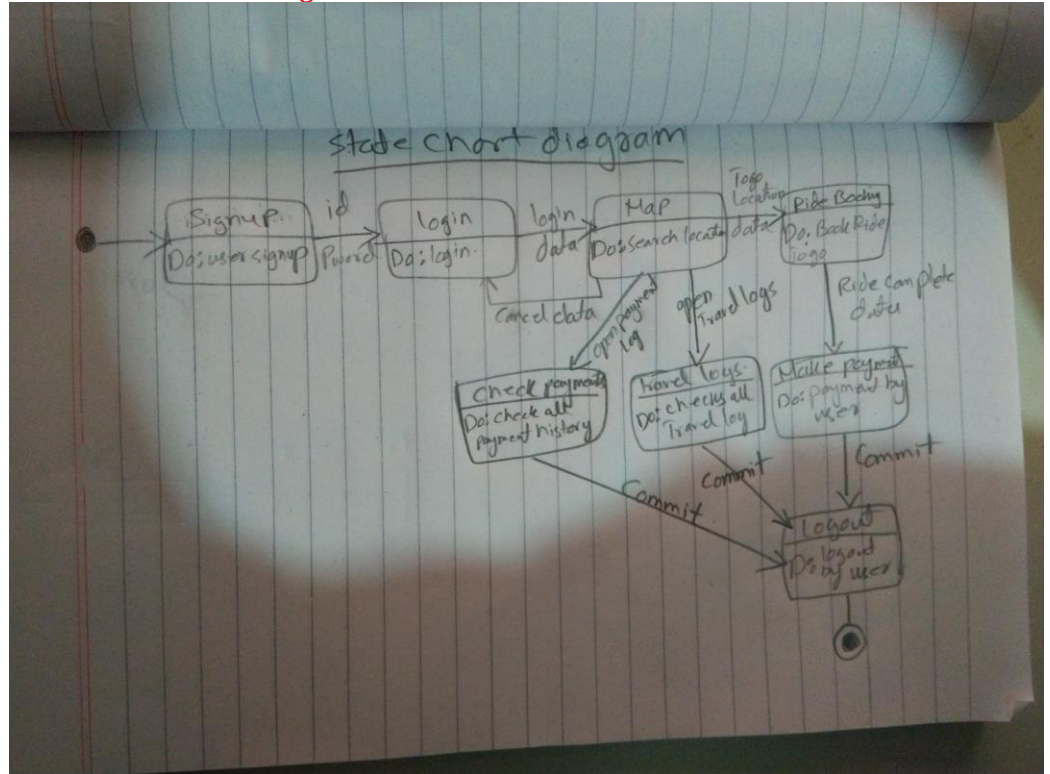 State chart diagram
Signup
Do: user signup
id
Pword
login
Do: login.
login
data
Map
Do: search locatio
Togo
Location
data
Ride Booking
Do: Book Ride
Togo
Cancel data
open payment
log
open
Travel logs
Ride complete
data
Check payments
Do: check all
payment history
Travel logs.
Do: checks all
Travel log
Make payment
Do: payment by
user
Commit
Commit
Commit
Logout
Do: logout
by user